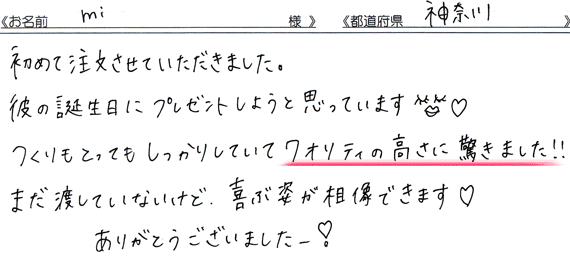 《お名前 mi 様 》 《都道府県 神奈川 》
初めて注文させていただきました。
彼の誕生日にプレゼントしようと思っています♡
つくりもとってもしっかりしていてクオリティの高さに驚きました!!
まだ渡していないけど、喜ぶ姿が想像できます♡
ありがとうございましたー!